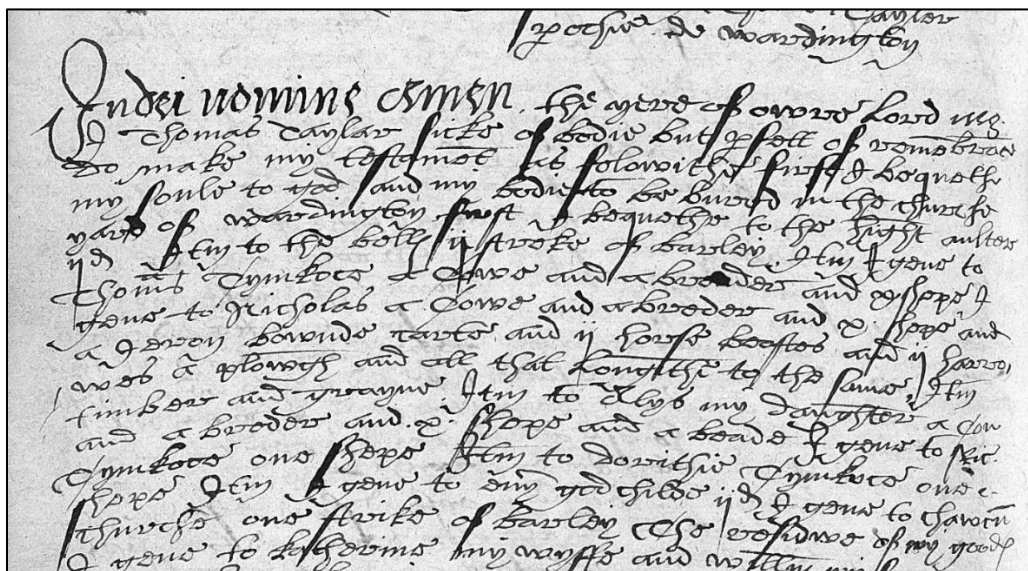 Tayler
pochie de wardington
In dei nomine Amen the yere of owre Lord
I Thomas Taylar sicke of bodie but pfett of remēbrāce
do make my testamēt as folowithe first I bequethe
my soule to god and my bodie to be buried in the churche
yard of wardington first I bequethe to the hight aulter
ijd Itm to the bells ij strike of barley Itm I geve to
Thoms Tymkoce a Cowe and a breader and x shepe I
geve to Nicholas a Cowe and a breder and x shepe and
a Ieron bownde carte and ij horse beastes and ij harro
wes a plowgh and all that longithe to the same Itm
timber and grayne Itm to Alys my daughter a Cow
and a breder and x shepe and a beade I geve to Ric
Tymkoce one shepe Itm to dorithie Tymkoce one
shepe Itm I geve to eūy godchilde ijd I geve to
churche one strike of barley The residwe of my goods
I geve to katherine my wyffe and willm my